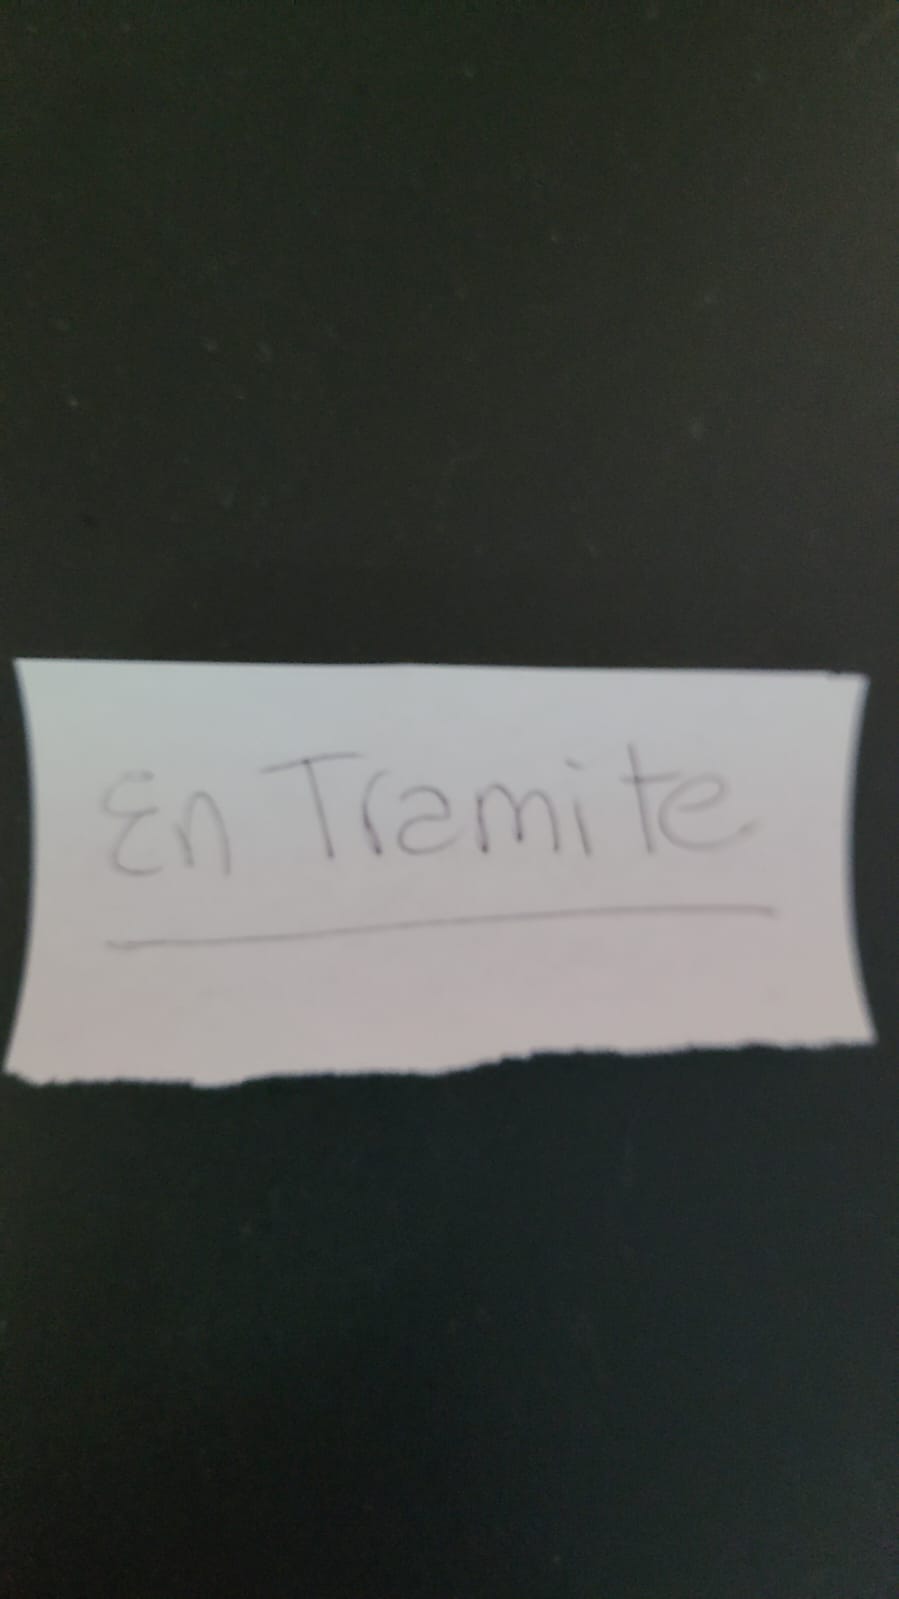 En Tramite